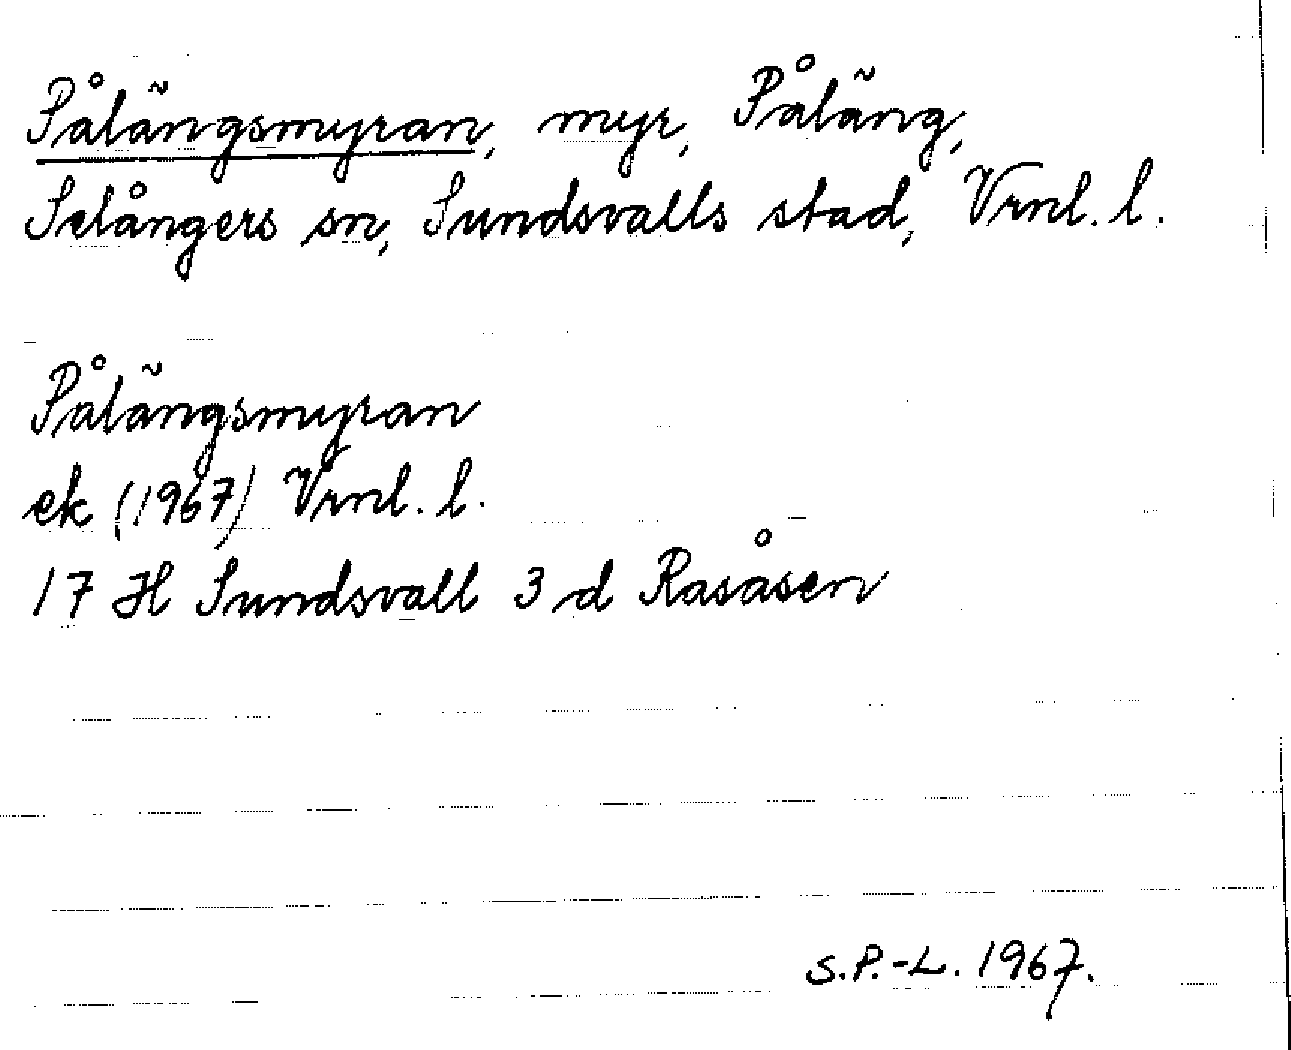 Pålängsmyran, myr, Påläng,
Selångers sn, Sundsvalls stad, Vrnl. l.
Pålängsmyran
ek (1967) Vrnl. l.
17 H Sundsvall 3 d Rasåsen
S.P.-L. 1967.